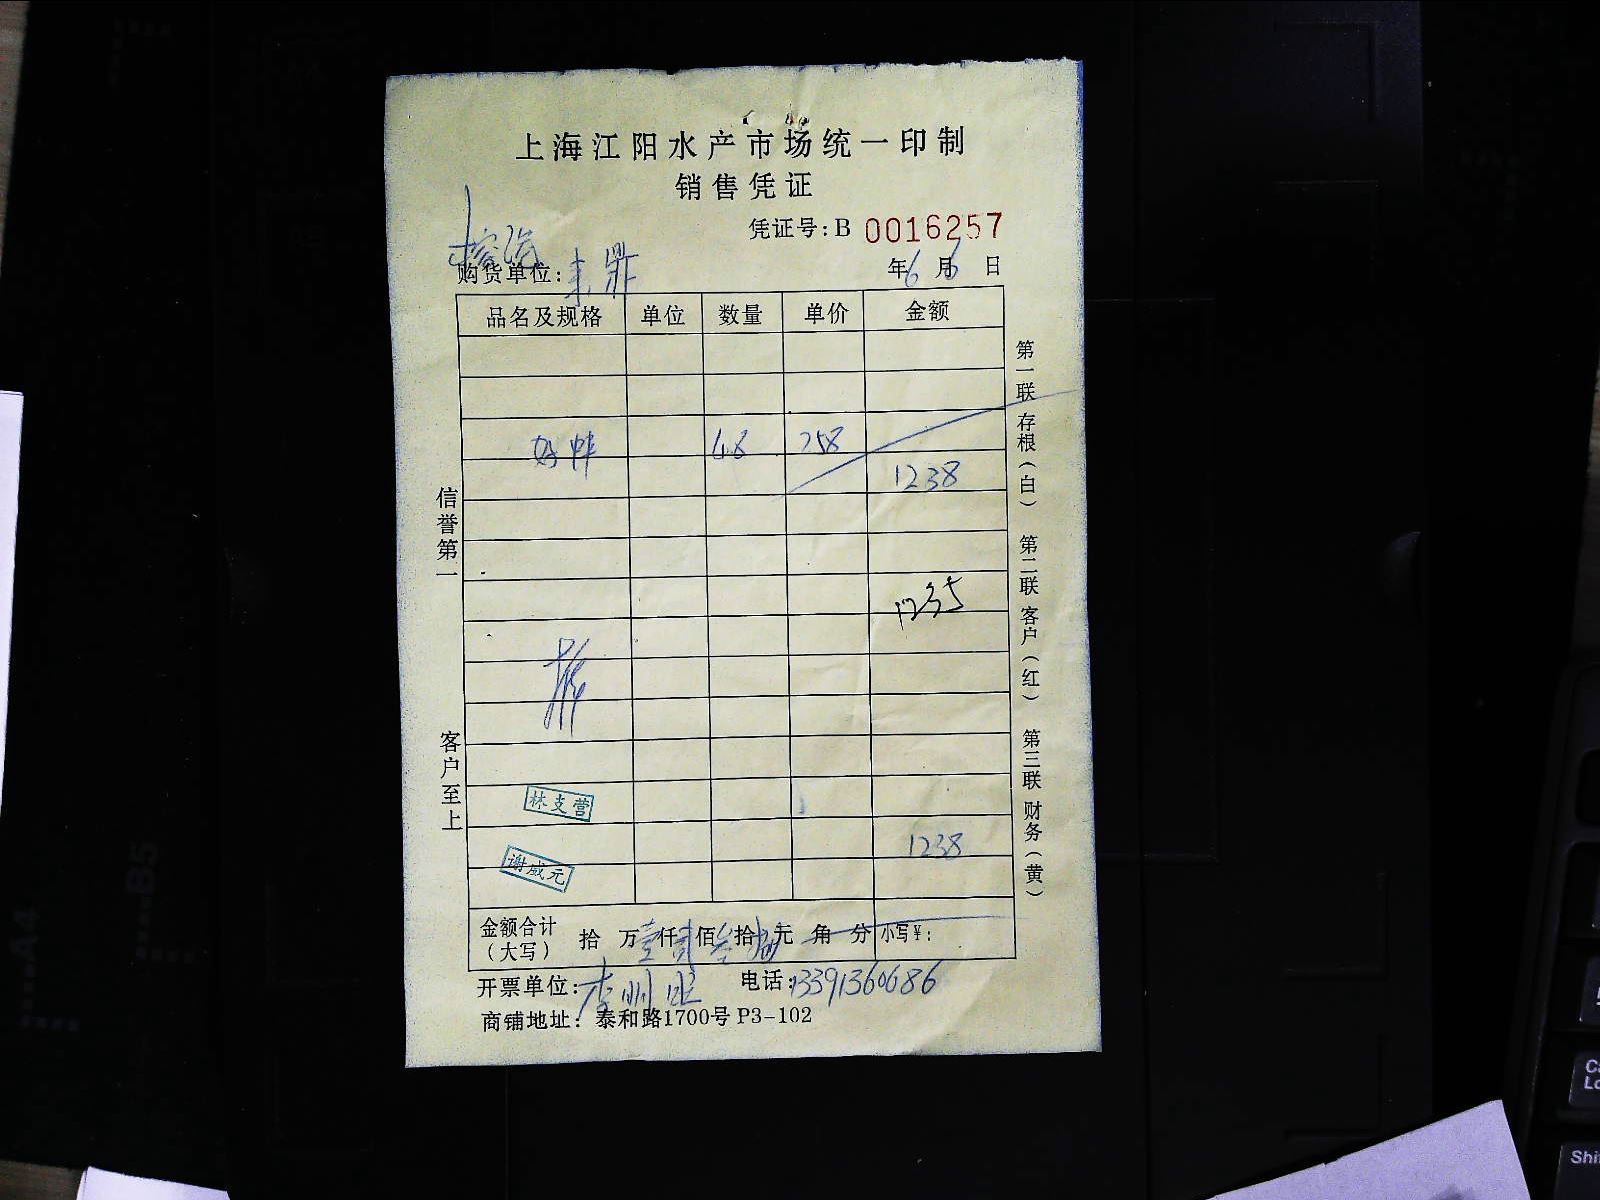 上海江阳水产市场统一印制
销售凭证
凭证号:B 0016257
购货单位:
年6月6日
品名及规格 单位 数量 单价 金额
258
1238
1235
林支营
谢成元
1238
金额合计(大写) 拾 万壹仟贰佰叁拾 元 角 分 小写¥:
开票单位: 电话:13391360686
商铺地址: 泰和路1700号 P3-102
信誉第一 客户至上
第一联 存根(白) 第二联 客户(红) 第三联 财务(黄)
A4
B5